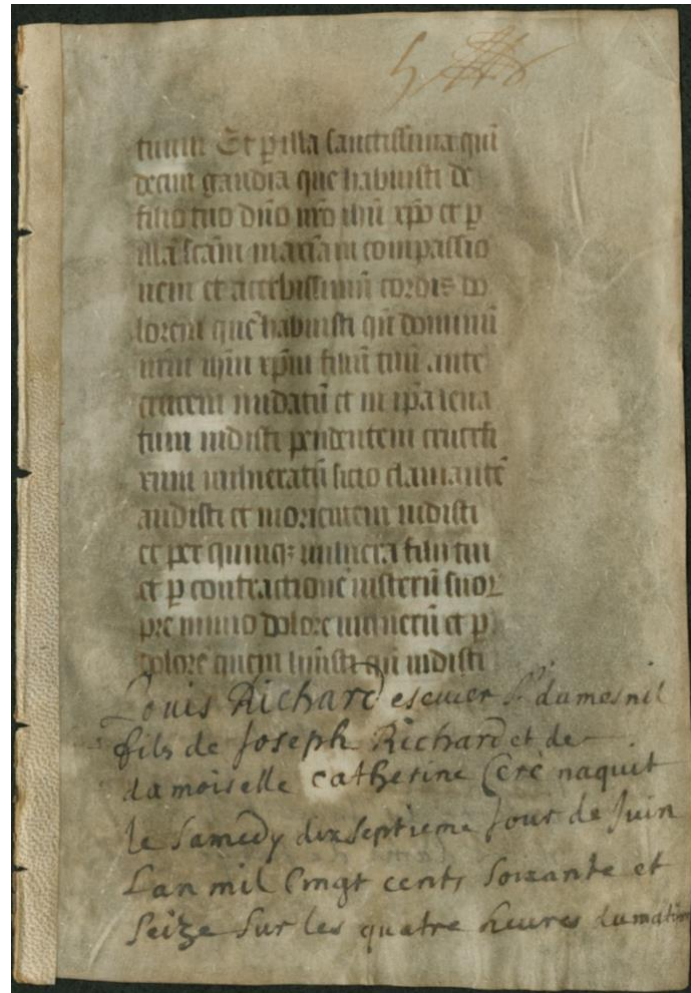 tuum Et p illa sanctissima qui
decim gaudia que habuisti de
filio tuo dño nr̃o ihũ xp̃o et p
illã scãm maxiam compassio
nem et acerbissimũ cordis do
lorem quẽ habuisti qñ dominũ
nr̃m ihũm xp̃m filiũ tuũ ante
crucem nudatũ et in ip̃a leua
tum uidisti pendentem crucifi
xum uulneratũ sicio clamantẽ
audisti et morientem uidisti
et per quinq; uulnera filii tui
et p contractionẽ uisterũ suoꝝ
pre nimio dolore uulnerũ et p
dolorẽ quem huisti qñ uidisti
Louis Richard escuier Sr dumesnil
fils de Joseph Richard et de
damoiselle catherine Ceré naquit
le Samedy dix Septieme Jour de Juin
Lan mil Cinqt cents Soixante et
Seize Sur les quatre heures dumatin